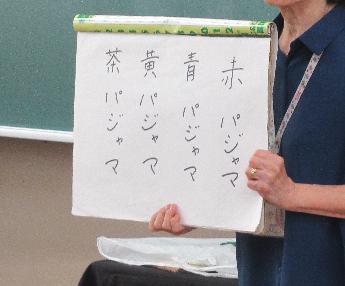 赤 パジャマ
青 パジャマ
黄 パジャマ
茶 パジャマ